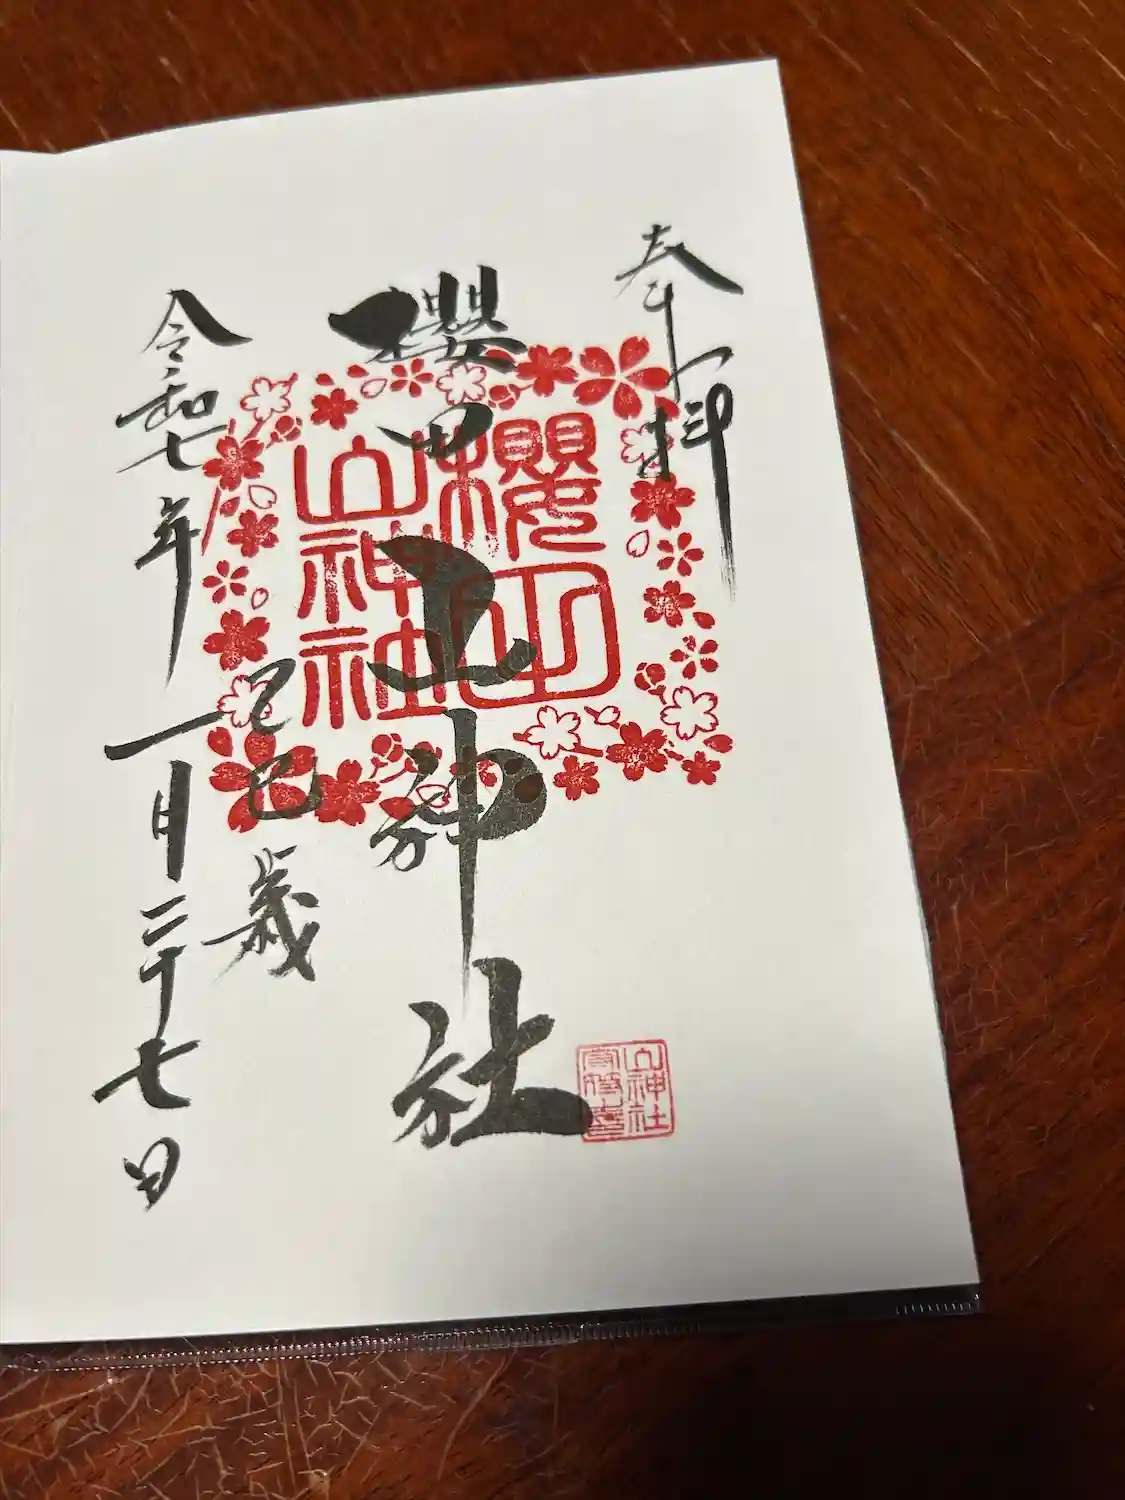 奉拝
櫻田山神社
櫻田
山神社
山神社
乙巳歳
令和七年一月二十七日